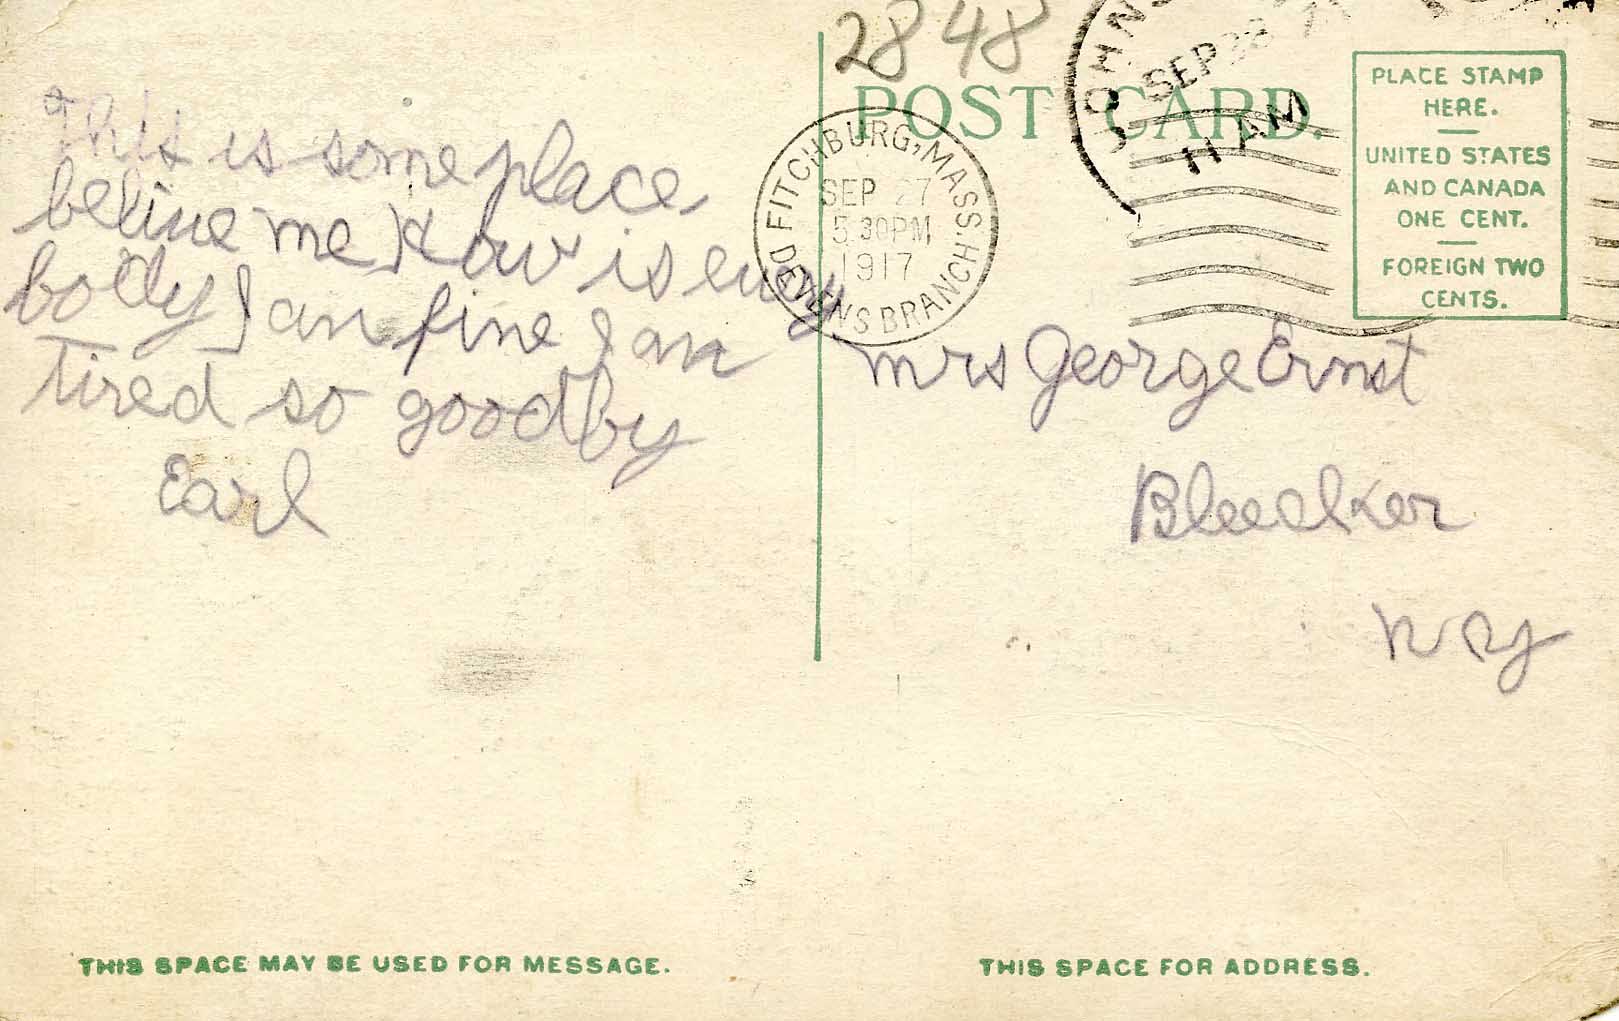 2848
POST CARD.
JOHNS
SEP 28
11 AM
FITCHBURG, MASS.
SEP 27
5 30PM
1917
DEVENS BRANCH
PLACE STAMP
HERE.
UNITED STATES
AND CANADA
ONE CENT.
FOREIGN TWO
CENTS.
This is some place
belive me How is every
body I am fine I am
tired so goodby
Earl
Mrs George Ernst
Bleecker
N Y
THIS SPACE MAY BE USED FOR MESSAGE.
THIS SPACE FOR ADDRESS.